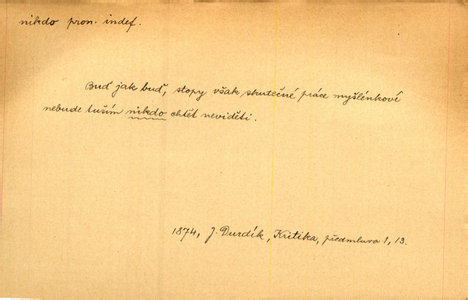 nikdo pron. indef.
Buď jak buď, stopy však skutečné práce myšlénkové
nebude tuším nikdo chtět neviděti.
1874, J. Durdík, Kritika, předmluva 1, 13.